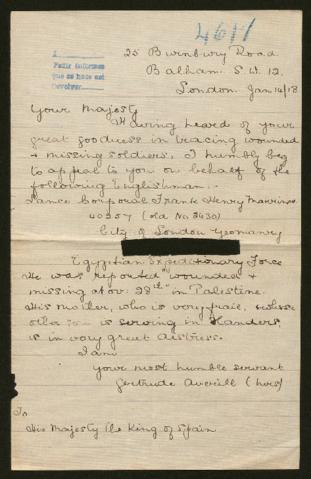 4617
Pedir informes
que se hace así
25 Burnbury Road
Balham. S.W. 12.
London. Jan 14/18
Your Majesty
Having heard of your
great goodness in tracing wounded
+ missing soldiers, I humbly beg
to appeal to you on behalf of the
following Englishman.
Lance Corporal Frank Henry
40257 (old No. 3630)
City of London Yeomanry
Egyptian Expeditionary Force
He was reported "wounded +
missing at Nov: 28th" in Palestine.
His mother, who is very frail, whose
other son is serving in Flanders
is in very great distress.
I am
Your most humble servant
Gertrude Averill (Mrs)
To
His Majesty the King of Spain